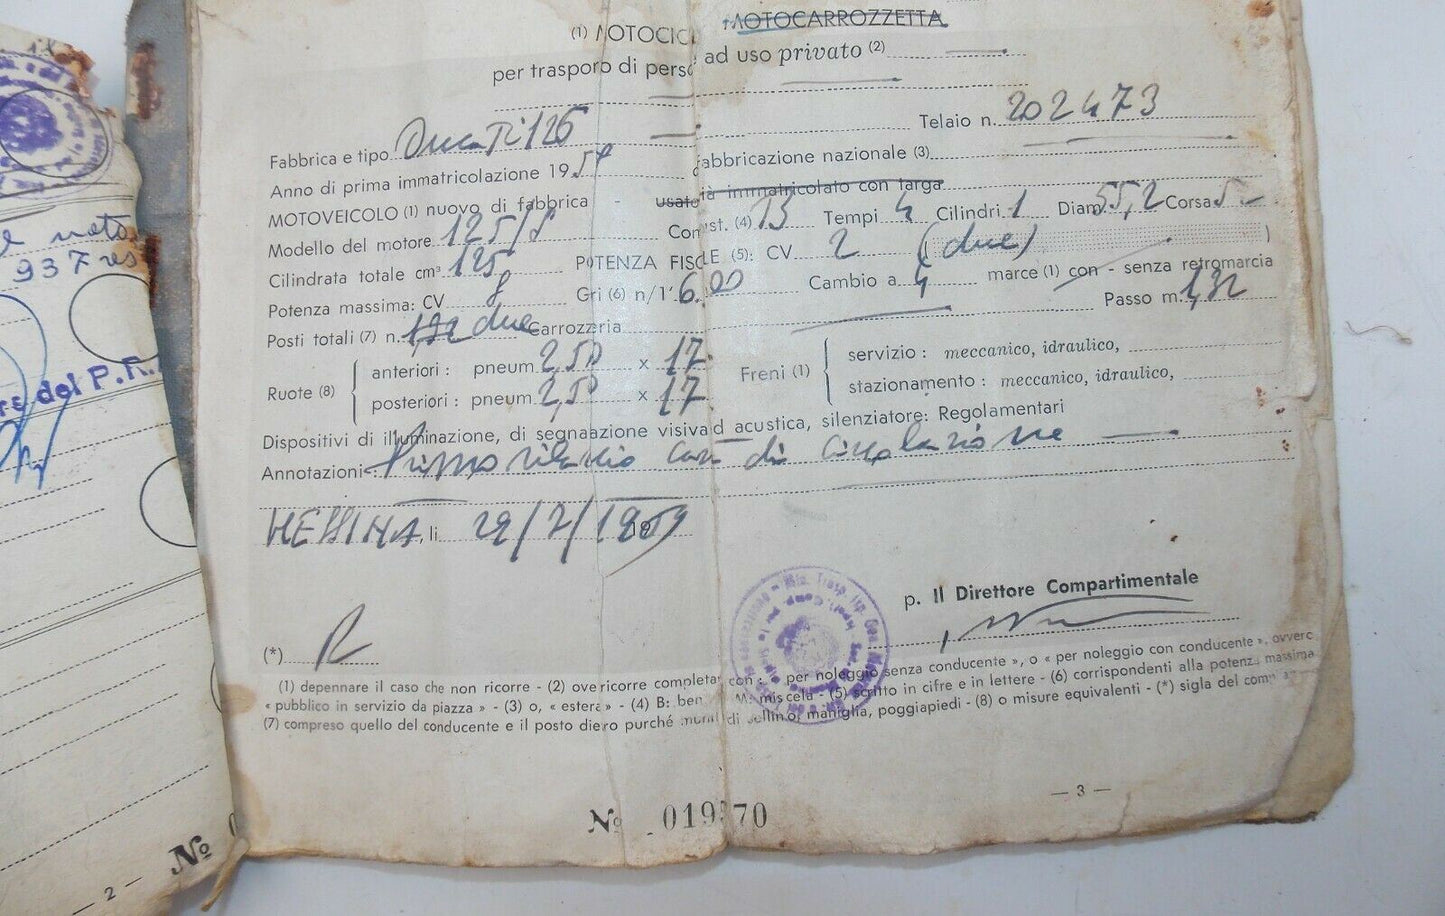 (1) MOTOCIC MOTOCARROZZETTA
per trasporo di perso ad uso privato (2)
Fabbrica e tipo Ducati 125 Telaio n. 202473
Anno di prima immatricolazione 1957 fabbricazione nazionale (3)
MOTOVEICOLO (1) nuovo di fabbrica - usato già immatricolato con targa
Modello del motore 125/S Comb.st. (4) B Tempi 4 Cilindri 1 Diam. 55,2 Corsa 5
Cilindrata totale cm³ 125 POTENZA FISCLE (5): CV 2 (due)
Potenza massima: CV 8 Gri (6) n/1' 6.00 Cambio a 4 marce (1) con - senza retromarcia
Posti totali (7) n. due Carrozzria Passo m. 1,32
Ruote (8)
anteriori : pneum 2,50 x 17
posteriori : pneum 2,50 x 17
Freni (1)
servizio : meccanico, idraulico,
stazionamento : meccanico, idraulico,
Dispositivi di illuminazione, di segnalazione visiva d acustica, silenziatore: Regolamentari
Annotazioni Primo rilascio carta di circolazione
MESSINA, li 29/7/1959
p. Il Direttore Compartimentale
(*)
(1) depennare il caso che non ricorre - (2) ove ricorre completar con : « per noleggio senza conducente », o « per noleggio con conducente », ovverc
« pubblico in servizio da piazza » - (3) o, « estera » - (4) B: ben M: miscela - (5) scritto in cifre e in lettere - (6) corrispondenti alla potenza massima
(7) compreso quello del conducente e il posto diero purché muni di sellino, maniglia, poggiapiedi - (8) o misure equivalenti - (*) sigla del comp
— 3 —
No 019 70
937
del P.R.
No
— 2 —